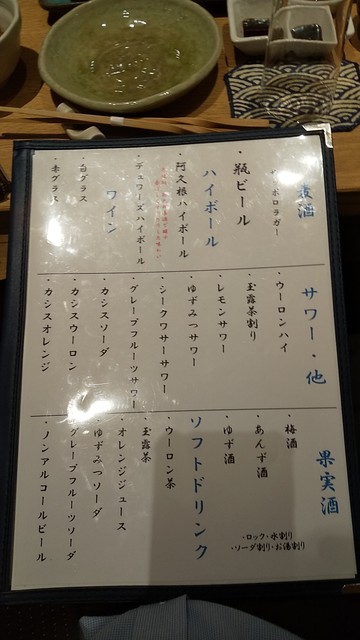 麦酒
・サッポロラガー
・瓶ビール
ハイボール
・阿久根ハイボール
・デュワーズハイボール
ワイン
・白グラス
・赤グラス
サワー・他
・ウーロンハイ
・玉露茶割り
・レモンサワー
・ゆずみつサワー
・シークワサーサワー
・グレープフルーツサワー
・カシスソーダ
・カシスウーロン
・カシスオレンジ
果実酒
・ロック・水割り
・ソーダ割り・お湯割り
・梅酒
・あんず酒
・ゆず酒
ソフトドリンク
・ウーロン茶
・玉露茶
・オレンジジュース
・ゆずみつソーダ
・グレープフルーツソーダ
・ノンアルコールビール